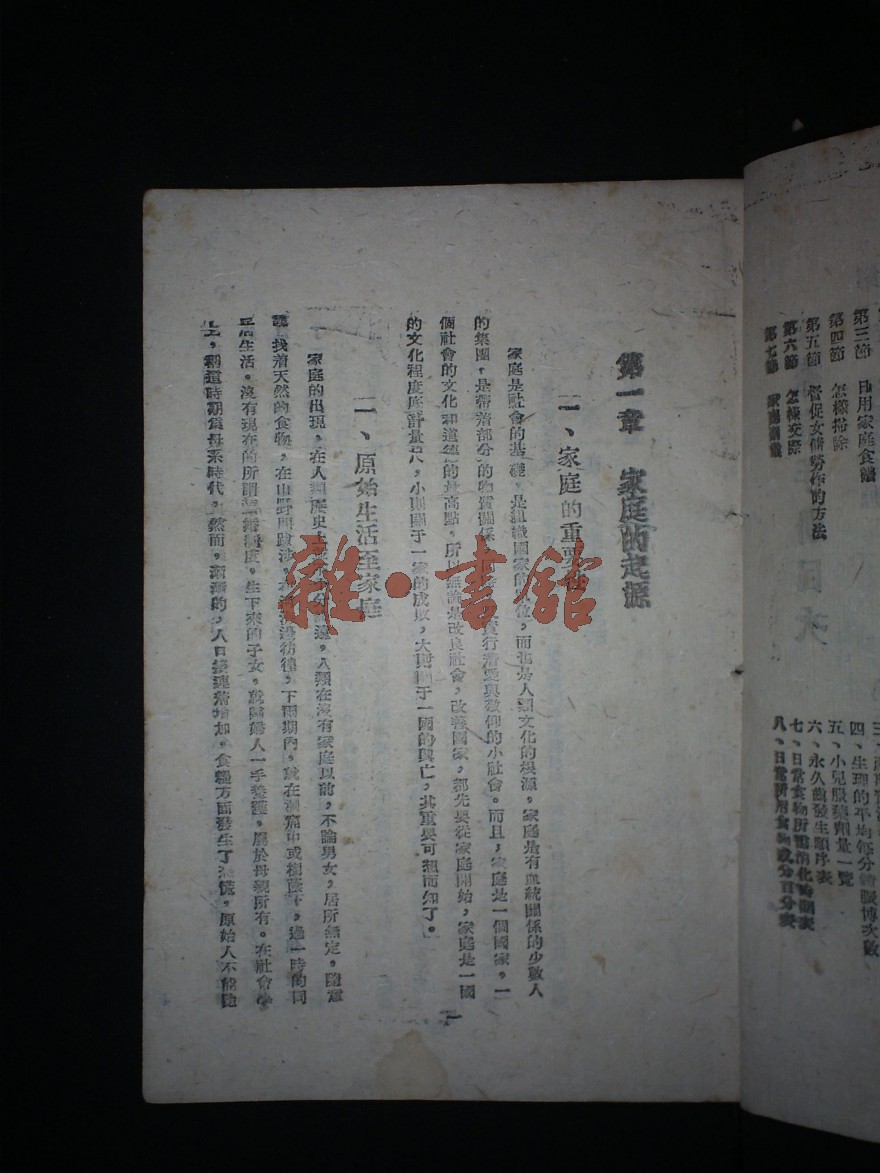 三、
四、生理的平均每分鐘脈搏次數
五、小兒服藥劑量一覽
六、永久齒發生順序表
七、日常食物所需消化時間表
八、日常所用食物成分百分表
第三節 日用家庭食譜
第四節 怎樣掃除
第五節 督促女傭勞作的方法
第六節 怎樣交際
第七節
第一章 家庭的起源
一、家庭的重要性
家庭是社會的基礎,是組織國家的單位,而也是人類文化的泉源,家庭是有血統關係的少數人
的集團,是帶着部分的物質關係,食行着愛與教仰的小社會。而且,家庭是一個國家,一
個社會的文化和道德的最高點,所以無論是改良社會,改善國家,都先要從家庭開始,家庭是一國
的文化程度底計量尺,小則關于一家的成敗,大則關于一國的興亡,其重要可想而知了。
二、原始生活至家庭
家庭的出現,在人類歷史上,人類在沒有家庭以前,不論男女,居所無定,隨意
找着天然的食物,在山野間跋涉,在沿邊彷徨,下雨期內,就在洞窟中或樹蔭下,過一時的同
居生活。沒有現在的所謂婚姻制度,生下來的子女,就歸婦人一手養護,屬於母親所有。在社會學
上,稱這時期爲母系時代,然而,漸漸的,人口發達着增加,食糧方面發生了恐慌,原始人不能隨
一
雜·書館